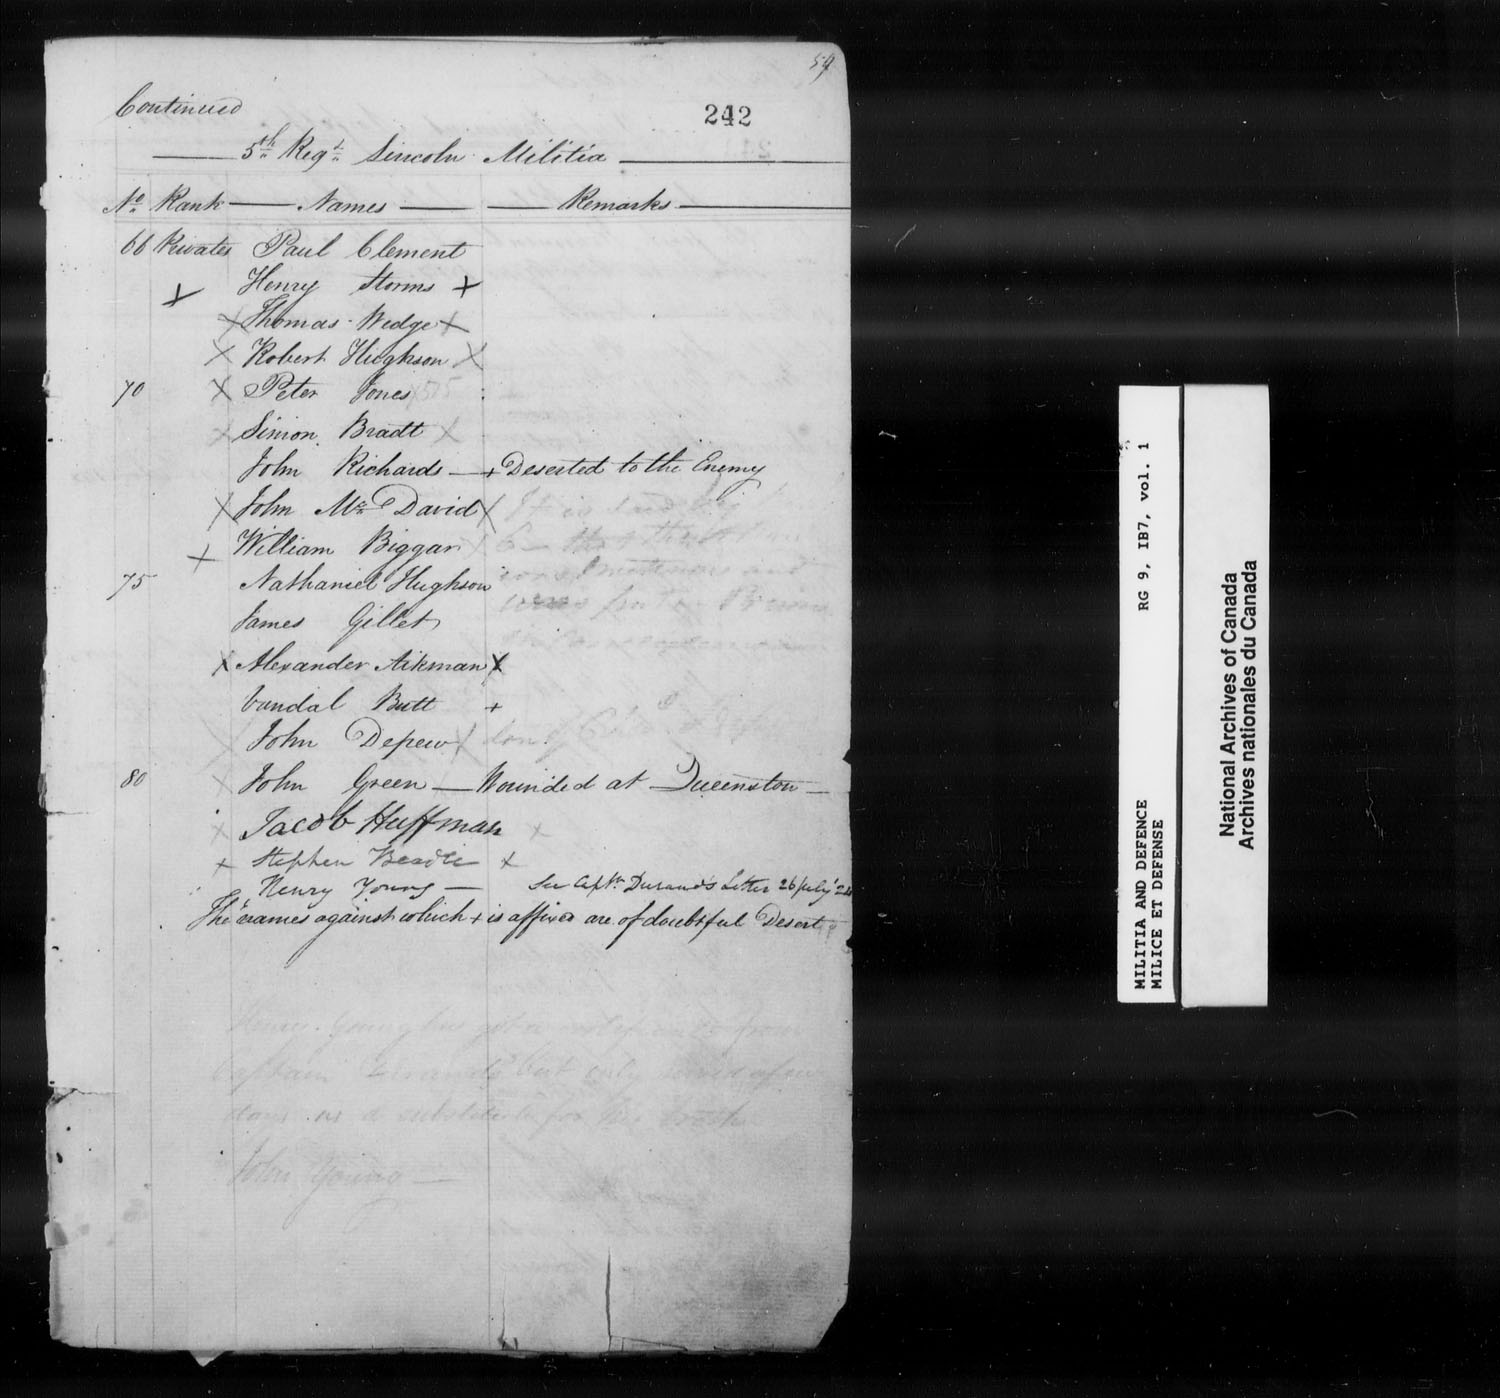 59
Continued
242
5th Regt Lincoln Militia
No Rank Names Remarks
66 Privates Paul Clement
+ Henry Storms +
X Thomas Wedge X
X Robert Hughson X
70 X Peter Jones X 505
X Simon Bradt X
John Richards + Deserted to the Enemy
X John Mc David X It is said by
+ William Biggar X
75 Nathaniel Hughson
James Gillet
X Alexander Aikman X
Vandal Butt +
John Depew X
80 X John Green Wounded at Queenston
X Jacob Huffman X
+ Stephen Beadle +
Henry Young — See Captn Durand's Letter 26 July
The names against which + is affixed are of doubtful Desert
Henry Young has got a certificate from
Captain Durand but only served a few
days as a substitute for his broth
John Young —
MILITIA AND DEFENCE RG 9, IB7, vol. 1
MILICE ET DEFENSE
National Archives of Canada
Archives nationales du Canada